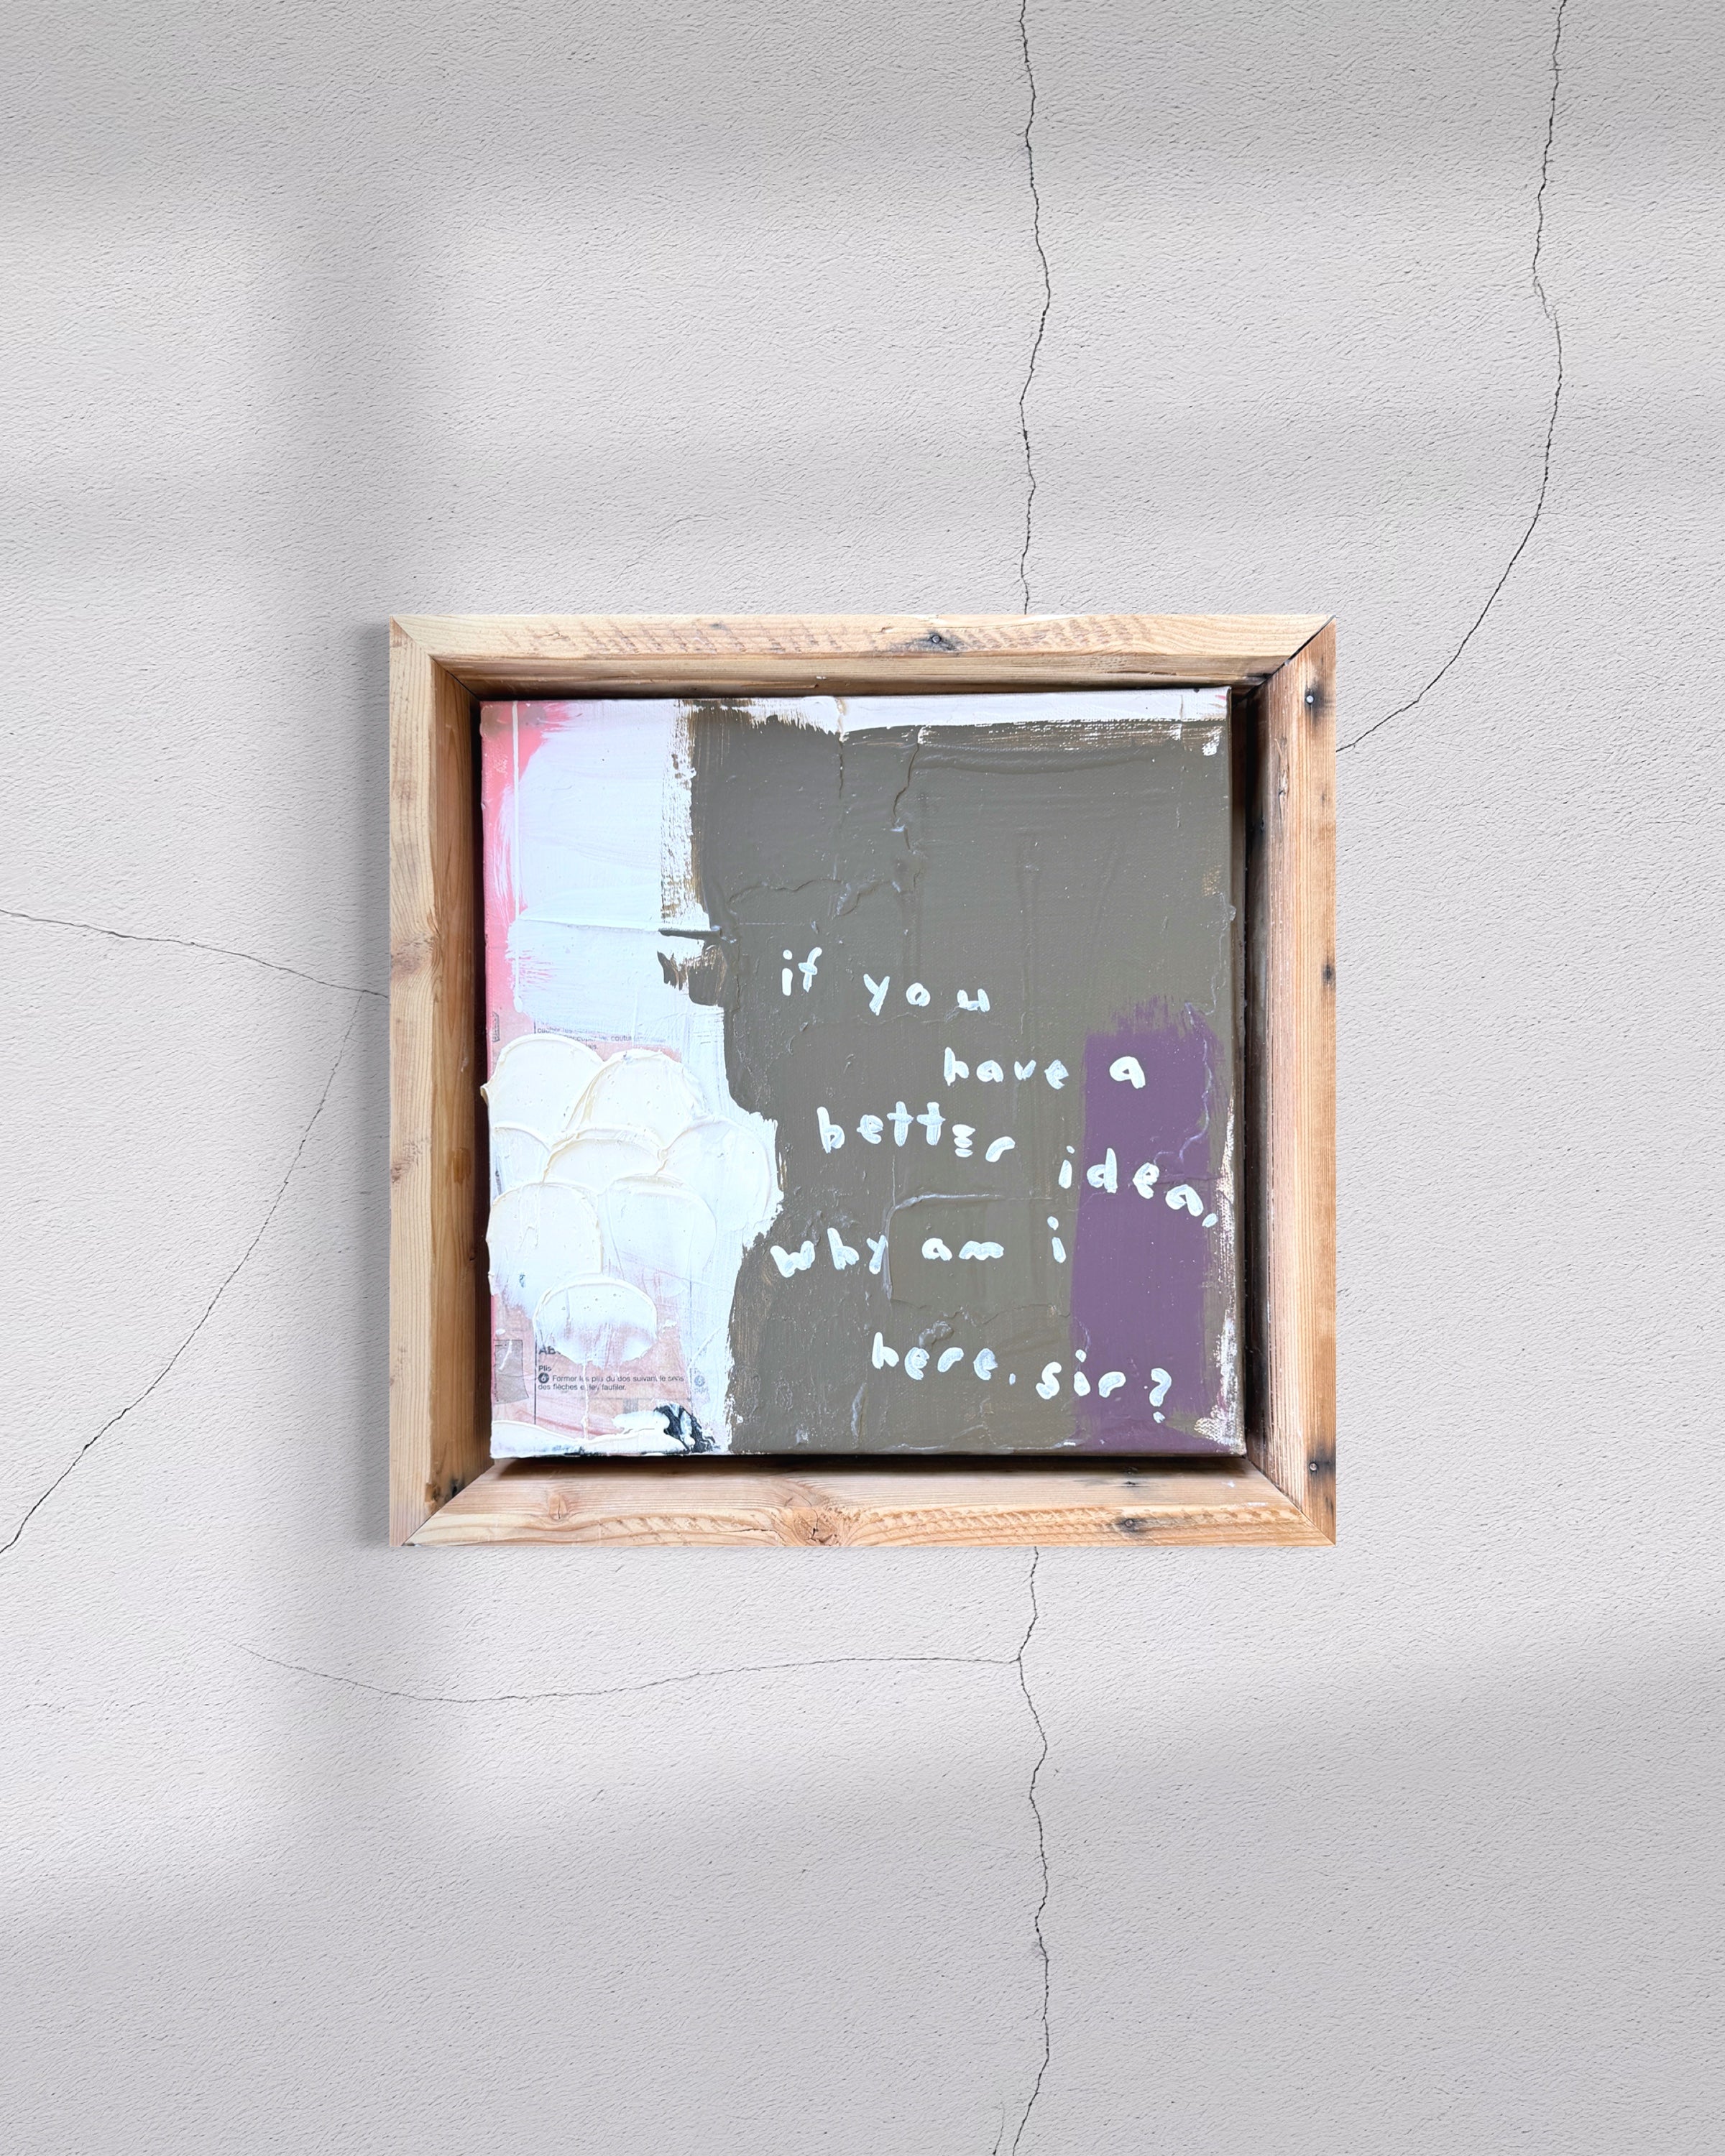 if you
have a
better idea,
why am i
here, sir?
Ab
Plis
6 Former les plis du dos suivant le sens
des flèches et les faufiler.